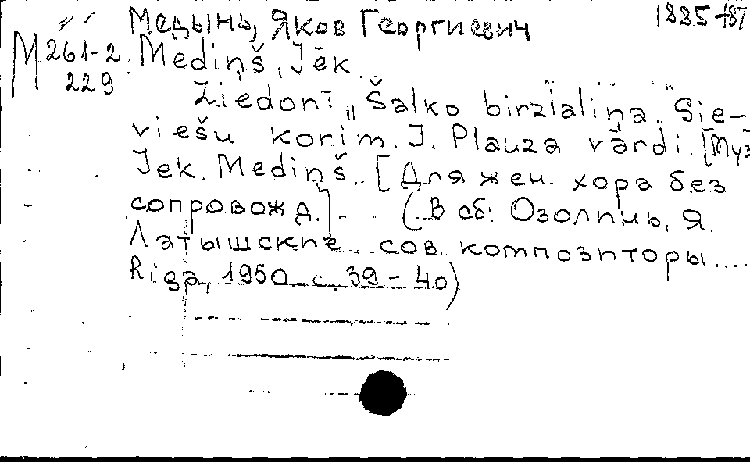 Медынь, Яков Георгиевич 1885
М 261-2 Mediņš, Jēk.
229
Ziedonī „Šalko birztaliņa." Sie-
viešu korim. J. Plauža vārdi. [Муз.
Jek. Mediņš. [Для жен. хора без
сопровожд.] (В сб: Озолинь, Я.
Латышские сов. композиторы...
Riga, 1950 с. 39-40)